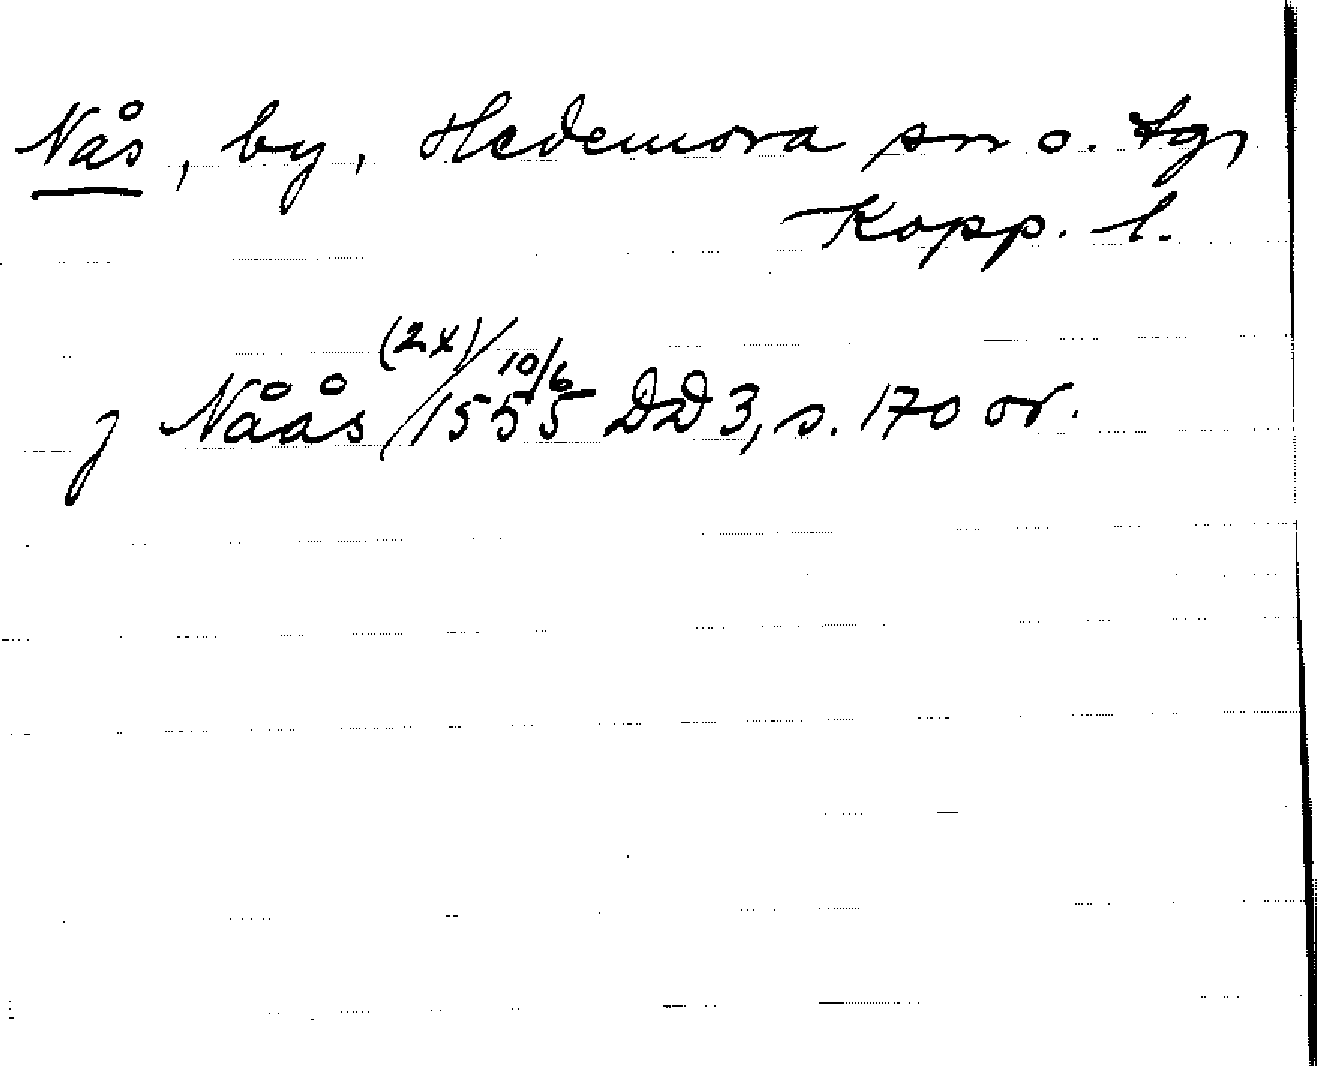 Nås, by, Hedemora sn o. tg,
Kopp. l.
j Nåås (2x)/ 10/6 1555 DD 3, s. 170 or.